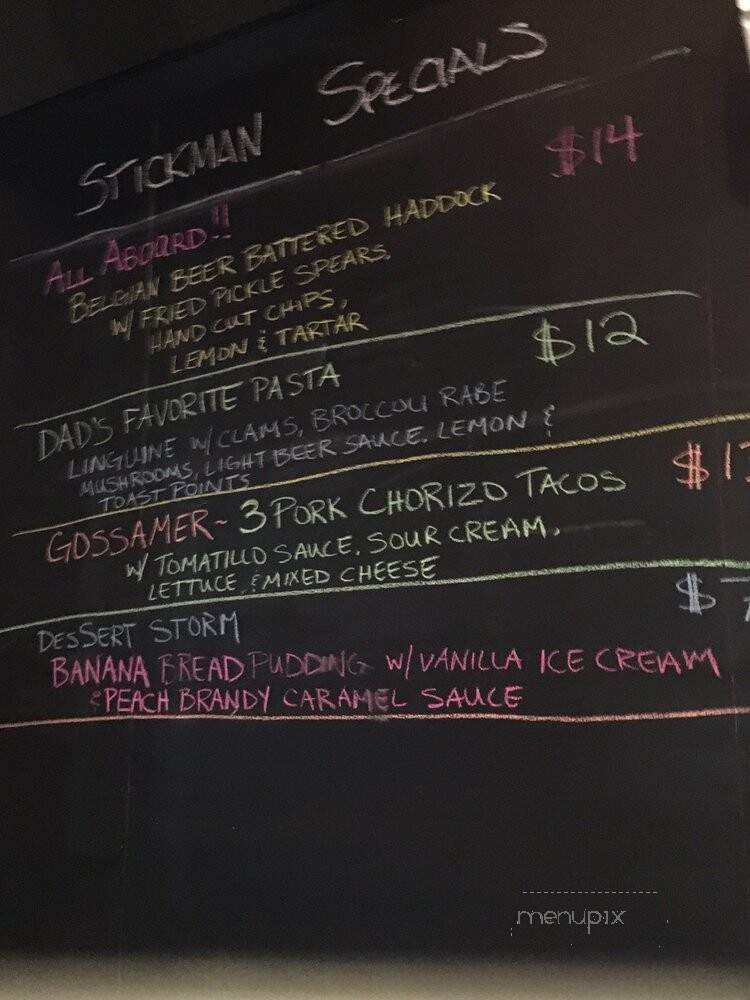 STICKMAN SPECIALS
ALL ABOARD!! $14
BELGIAN BEER BATTERED HADDOCK
W/ FRIED PICKLE SPEARS,
HAND CUT CHIPS,
LEMON & TARTAR
DAD'S FAVORITE PASTA $12
LINGUINE W/CLAMS, BROCCOLI RABE
MUSHROOMS, LIGHT BEER SAUCE, LEMON &
TOAST POINTS
GOSSAMER~ 3 PORK CHORIZO TACOS
W/ TOMATILLO SAUCE, SOUR CREAM,
LETTUCE, & MIXED CHEESE
DESSERT STORM $7
BANANA BREAD PUDDING W/VANILLA ICE CREAM
& PEACH BRANDY CARAMEL SAUCE
menupix